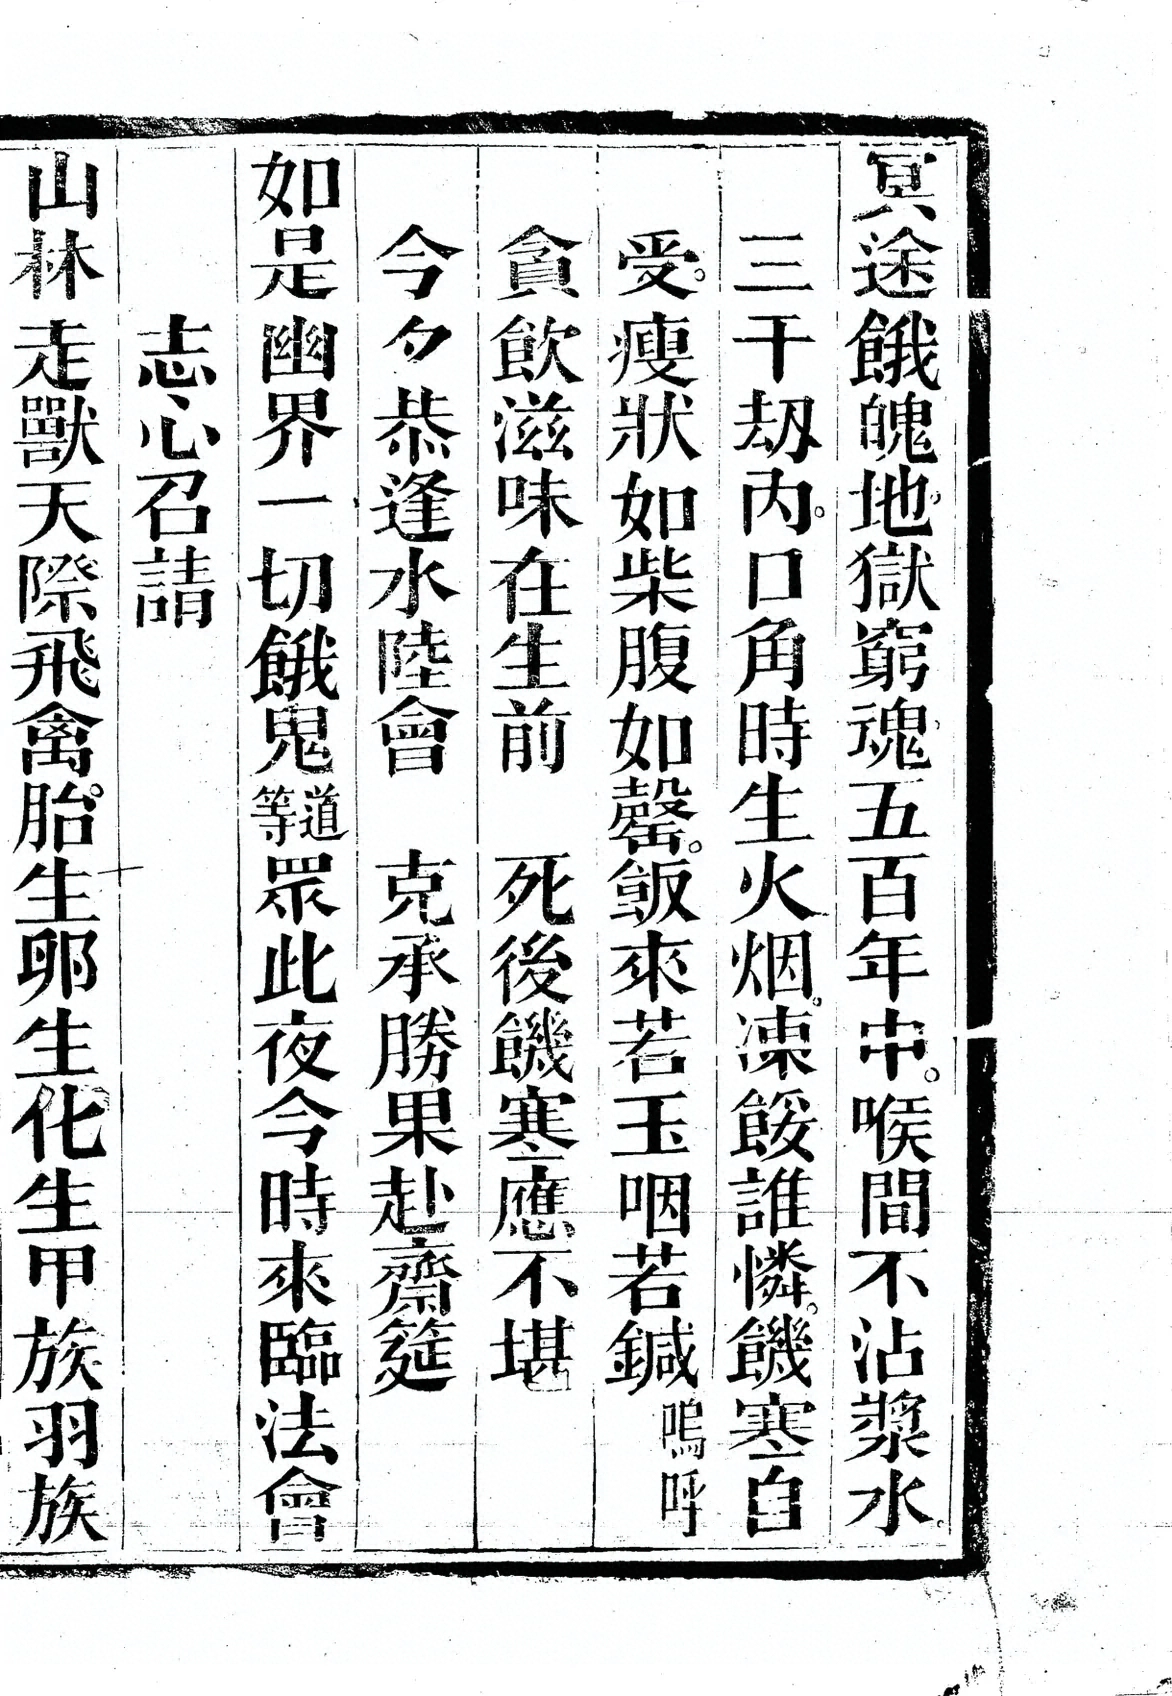 冥途餓魄地獄窮魂五百年中。喉間不沾漿水。
三千劫內。口角時生火烟。凍餒誰憐。饑寒自
受。瘦狀如柴腹如罄。飯來若玉咽若鍼嗚呼
貪飲滋味在生前　死後饑寒應不堪
今夕恭逢水陸會　克承勝果赴齋筵
如是幽界一切餓鬼道等眾此夜今時來臨法會
志心召請
山林走獸天際飛禽。胎生卵生化生甲族羽族